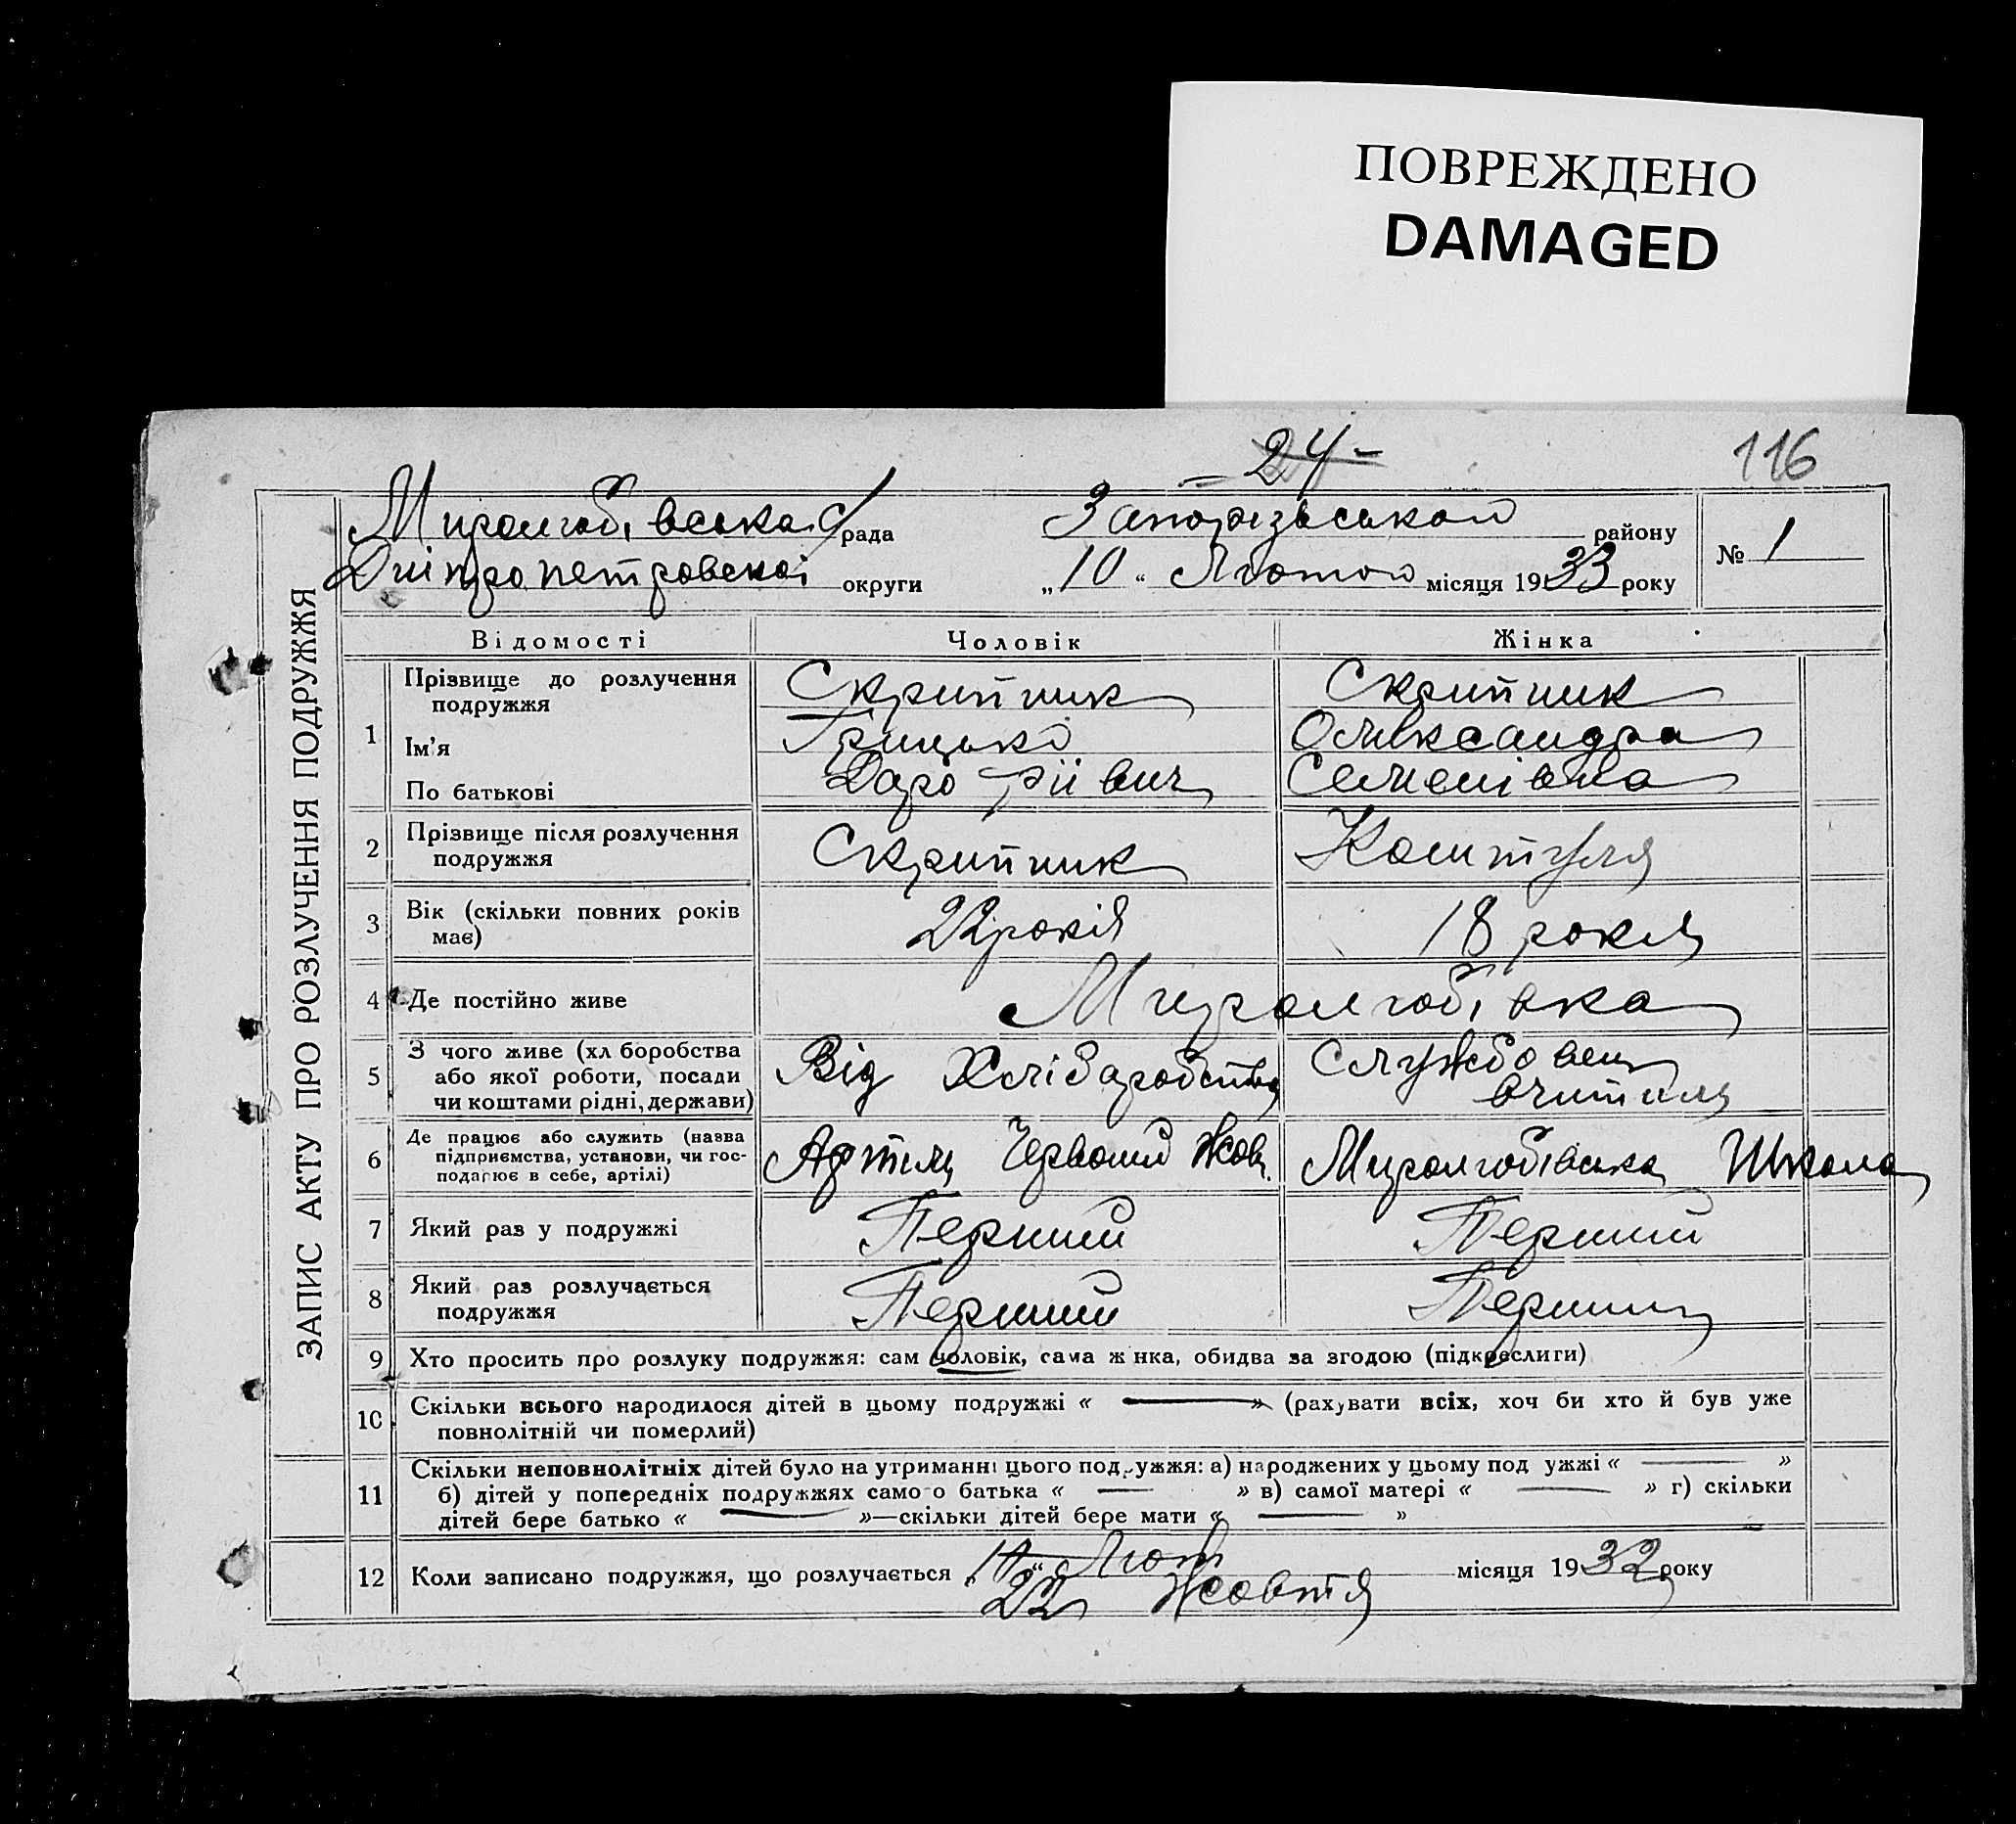 ПОВРЕЖДЕНО
DAMAGED
- 24 -
116
Миролюбівська с/рада Запорізького району
Дніпропетровської округи „10“ Лютого місяця 1933 року
№ 1
ЗАПИС АКТУ ПРО РОЗЛУЧЕННЯ ПОДРУЖЖЯ
Відомості Чоловік Жінка
1 Прізвище до розлучення подружжя Скрипник Скрипник
Ім'я Грицько Олександра
По батькові Семенівна
2 Прізвище після розлучення подружжя Скрипник
3 Вік (скільки повних років має) 22 років 18 роки
4 Де постійно живе Миролюбівка
5 З чого живе (хліборобства або якої роботи, посади чи коштами рідні, держави) Від Хліборобства Службовець вчитель
6 Де працює або служить (назва підприємства, установи, чи господарює в себе, артілі) Артіль Червоний Жовт. Миролюбівська Школа
7 Який раз у подружжі Перший Перший
8 Який раз розлучається подружжя Перший Перший
9 Хто просить про розлуку подружжя: сам чоловік, сама жінка, обидва за згодою (підкреслити)
10 Скільки всього народилося дітей в цьому подружжі « — » (рахувати всіх, хоч би хто й був уже
повнолітній чи померлий)
11 Скільки неповнолітніх дітей було на утриманні цього подружжя: а) народжених у цьому подружжі « — »
б) дітей у попередніх подружжях самого батька « — » в) самої матері « — » г) скільки
дітей бере батько « — »—скільки дітей бере мати « — »
12 Коли записано подружжя, що розлучається „10“ Лют місяця 1932 року
22 Жовтня